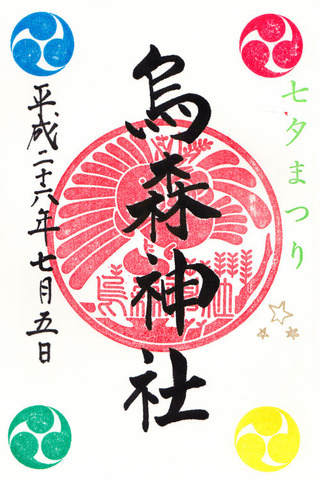 七夕まつり
烏森神社
平成二十六年七月五日